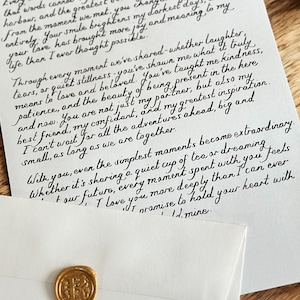 that words cannot
harbour, and the greatest
from the moment we met, you changed
entirely. Your smile brightens my darkest days,
your love has brought more joy and meaning to my
life than I ever thought possible.
Through every moment we've shared - whether laughter,
tears, or quiet stillness - you've shown me what it truly
means to love and beloved. You've taught me kindness,
patience, and the beauty of being present in the here
and now. You are not just my partner, but also my
best friend, my confidant, and my greatest inspiration
I can't wait for all the adventures ahead, big and
small, as long as we are together.
With you, even the simplest moments become extraordinary
Whether it's sharing a quiet cup of tea or dreaming
our future, every moment spent with you feels
I love you more deeply than I can ever
I promise to hold your heart with
mine.